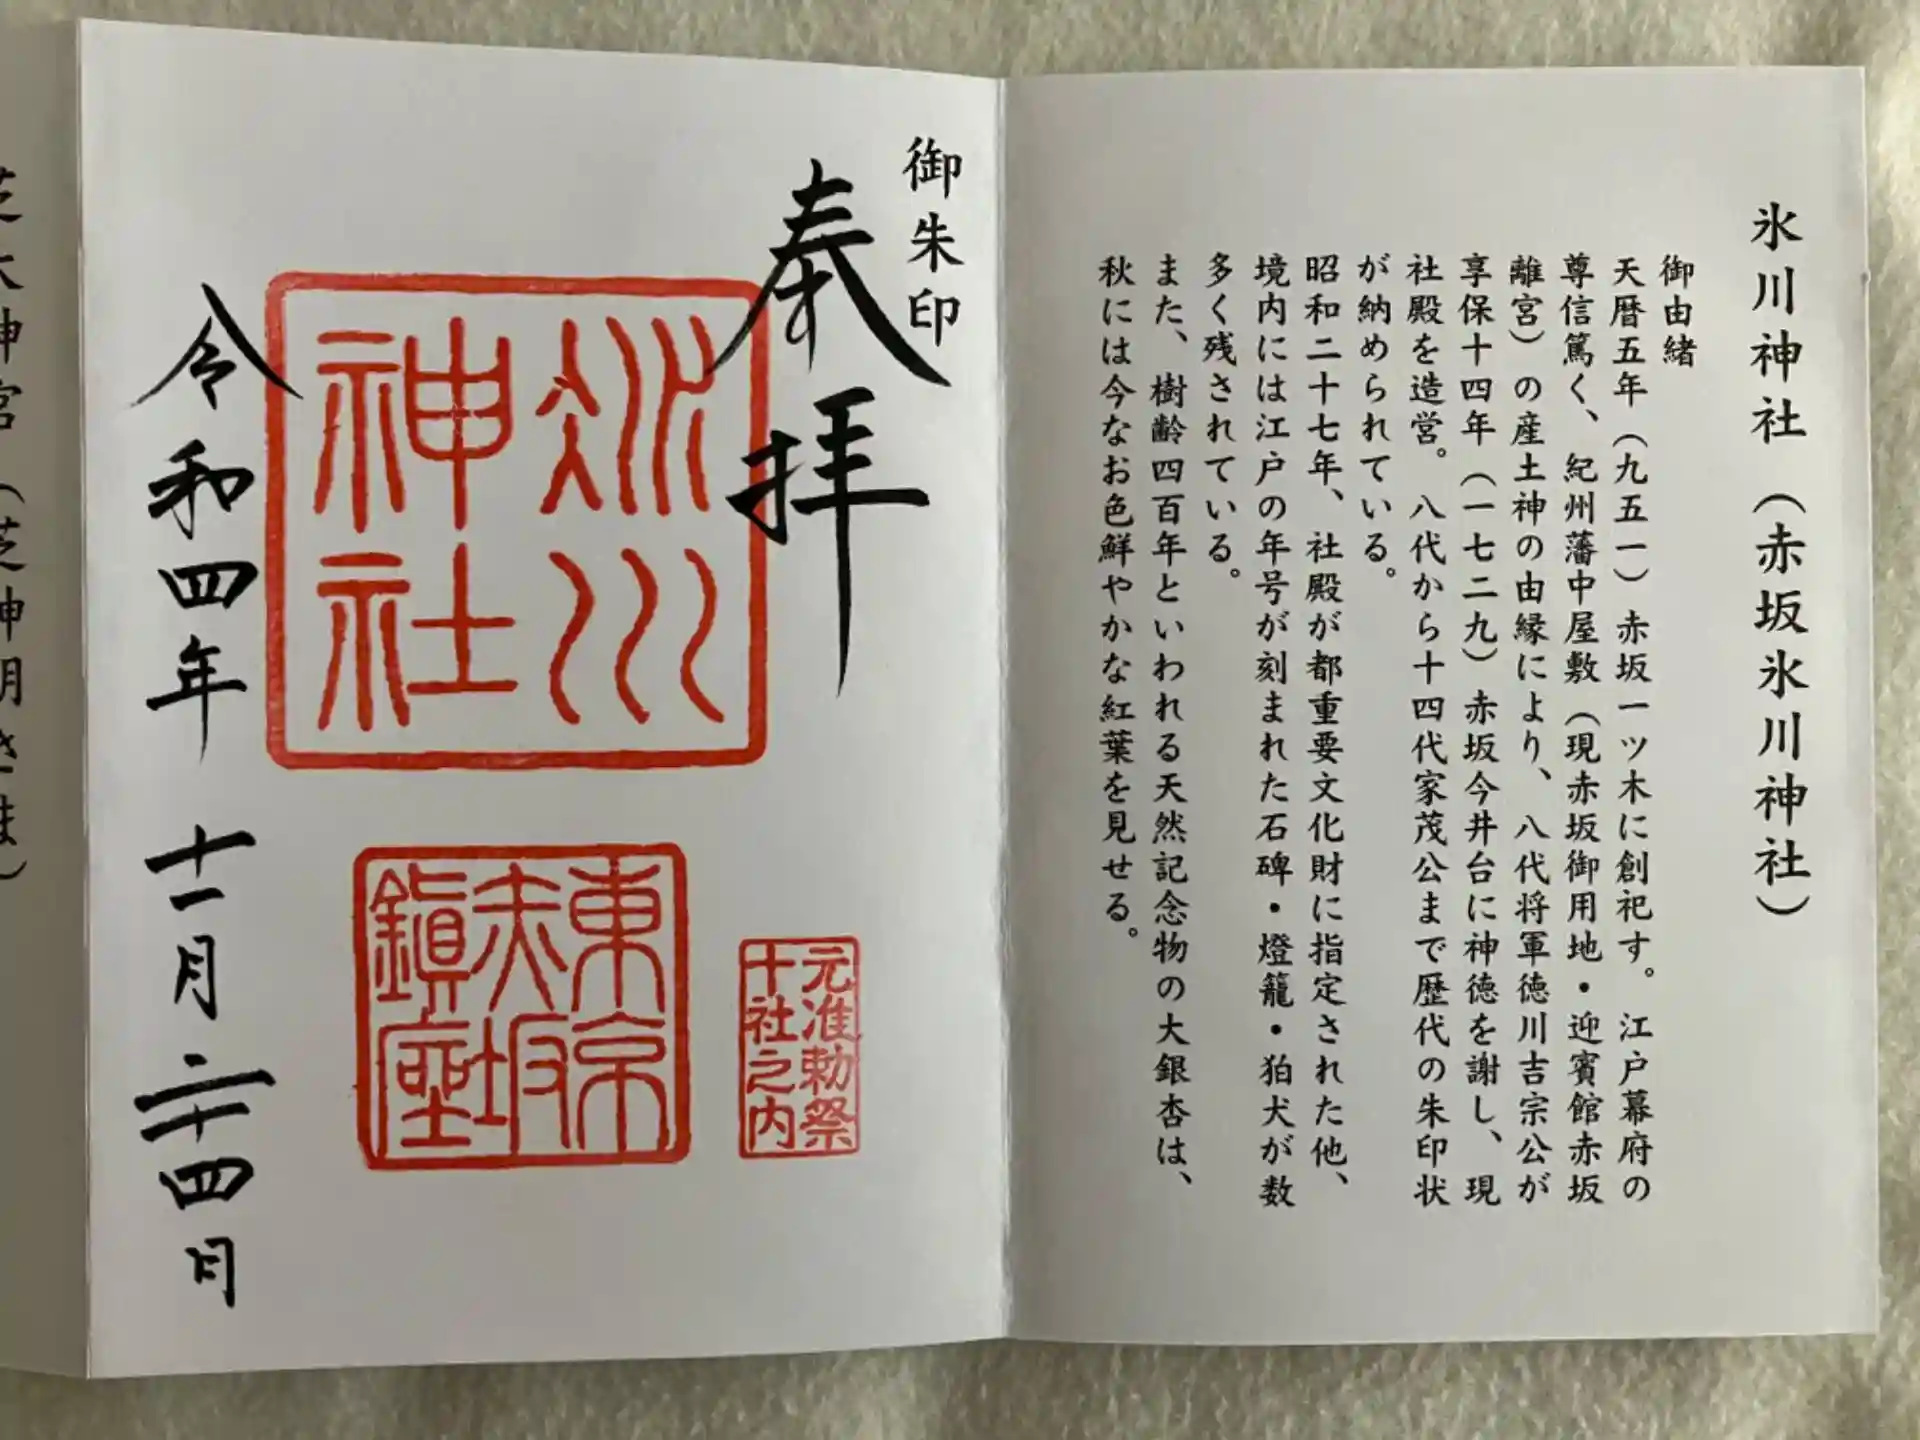 氷川神社（赤坂氷川神社）
御由緒
天暦五年（九五一）赤坂一ツ木に創祀す。江戸幕府の
尊信篤く、紀州藩中屋敷（現赤坂御用地・迎賓館赤坂
離宮）の産土神の由縁により、八代将軍徳川吉宗公が
享保十四年（一七二九）赤坂今井台に神徳を謝し、現
社殿を造営。八代から十四代家茂公まで歴代の朱印状
が納められている。
昭和二十七年、社殿が都重要文化財に指定された他、
境内には江戸の年号が刻まれた石碑・燈籠・狛犬が数
多く残されている。
また、樹齢四百年といわれる天然記念物の大銀杏は、
秋には今なお色鮮やかな紅葉を見せる。
御朱印
奉拝
氷川
神社
元准勅祭
十社之内
東京
赤坂
鎮座
令和四年 十一月 二十四日
芝大神宮（芝神明さま）